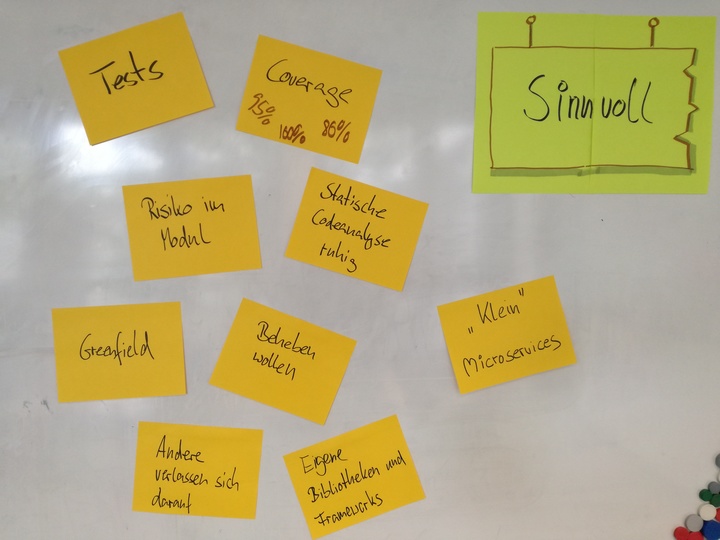 Tests
Coverage
95%
100%
86%
Sinnvoll
Risiko im
Modul
Statische
Codeanalyse
ruhig
Greenfield
Beheben
wollen
„Klein"
Microservices
Andere
verlassen sich
darauf
Eigene
Bibliotheken und
Frameworks